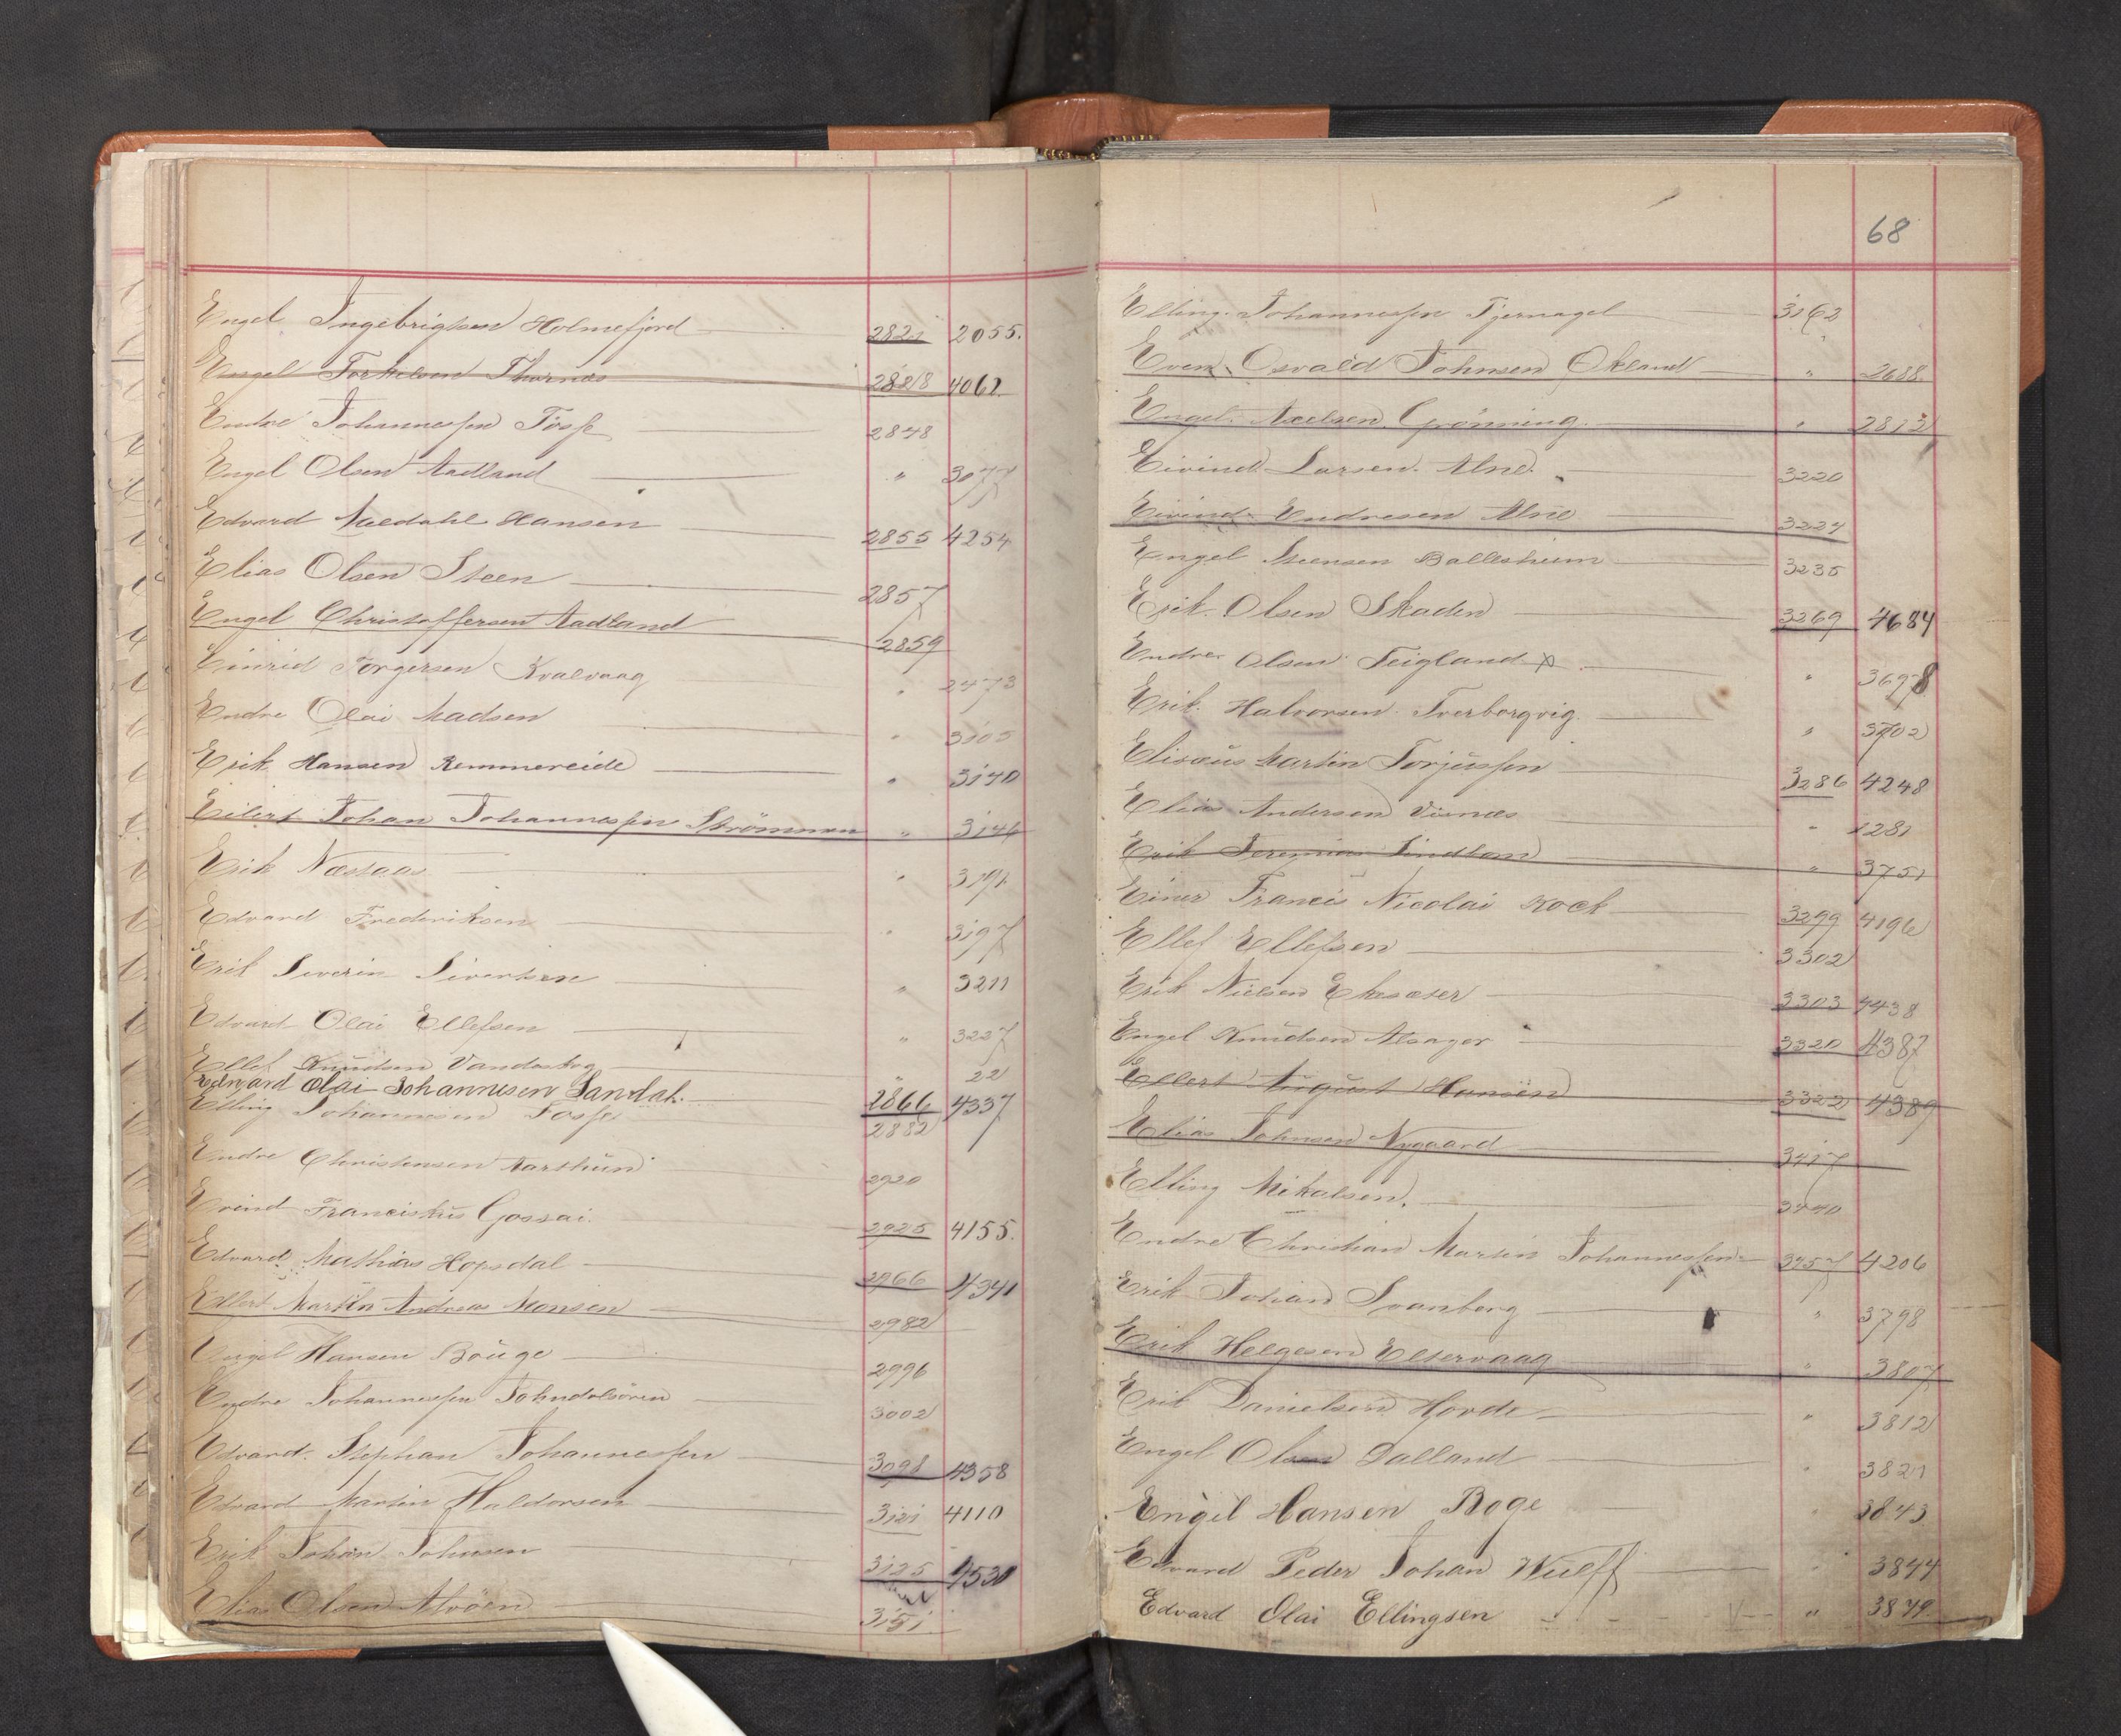 Engel Ingebrigtsen Holmefjord 2821 2055.
Engel Torkelsen 2828 4061.
Endre Johannessen Fosse 2848
Engel Olsen Aadland " 3077
Edvard Hansen 2855 4254
Elias Olsen Steen 2857
Engel Christoffersen Aadland 2859
Torgersen Kvalvaag " 2473
Endre Olai Madsen " 3105
Erik Hansen Remmereide " 3140
Eilert Johan Johannessen Strömmen " 3146
Erik Næstaas " 3191
Edvard Frederiksen " 3197
Erik Severin Sivertsen " 3211
Edvard Olai Ellefsen " 3227
Ellef Knudsen " 22
Edvard Olai Johannesen Sandal. 2866 4337
Elling Johannesen Fosse 2882
Endre Christensen Aarthun 2920
Franciskus Gossai. 2925 4155.
Edvard Mathias Hopsdal 2966 4341
Ellert Martin Andreas Monsen 2982
Engel Hansen Bouge 2996
Endre Johannessen 3002
Edvard Stephan Johannessen 3098 4358
Edvard Martin Haldorsen 3121 4110
Erik Johan Johnsen 3125 4530
Elias Olsen Alvöen 3151
68
Elling Johannessen Tjernagel 3162
Even Osvald Johnsen Økland " 2688.
Engel Axelsen Grönning. " 2813
Eivind Larsen Alne. 3220
Eivind Endresen Alne 3224
Engel Steensen Ballesheim 3235
Erik Olsen Skaden 3269 4684
Endre Olsen Teigland " 3698
Erik Halvorsen Tverborgvig. " 3702
Elisæus Martin Torjussen 3286 4248
Elias Andersen Visnæs " 1281
Erik Jeremias Lindbom " 3751
Einer Francis Nicolai Kock 3299 4196
Ellef Ellefsen 3302
Erik Nielsen Ekesæter 3303 4438
Engel Knudsen Alsager 3320 4387
Ellert August Hansen 3322 4389
Elias Johnsen Nygaard 3417
Elling Mikalsen. 3440
Endre Christian Martin Johannessen 3457 4206
Erik Johan Svanberg " 3798
Erik Helgesen Eltervaag " 3807
Erik Danielsen Horde " 3812
Engel Olsen Dalland " 3821
Engel Hansen Boge " 3843
Edvard Peder Johan Wulff " 3844
Edvard Olai Ellingsen " 3879